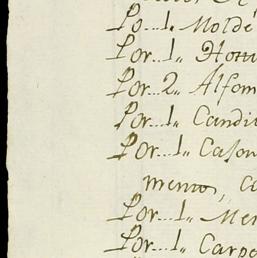 Po...1,, Molde
Por...1,,
Por...2,, Alfom
Por...1,, Candi
Por...1,, Cason
mento,, ca
Por...1,, Mer
Por...1,, Carpe